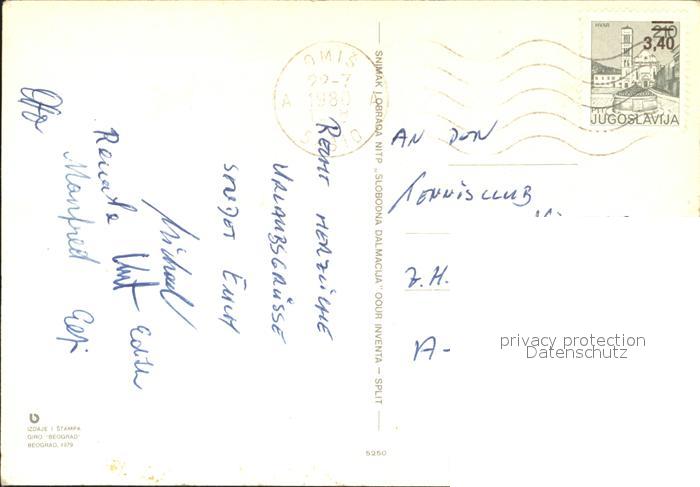 HVAR
210
3,40
JUGOSLAVIJA
OMIŠ
22-7
1980
A A
RECHT HERZLICHE
URLAUBSGRÜSSE
SENDET EUCH
Michael
Renate
Edith
Manfred
AN DEN
TENNISCLUB
Z.H.
A-
SNIMAK I OBRADA NITP „SLOBODNA DALMACIJA" OOUR INVENTA — SPLIT
IZDAJE I ŠTAMPA
GIRO "BEOGRAD"
BEOGRAD, 1979
5250
privacy protection
Datenschutz